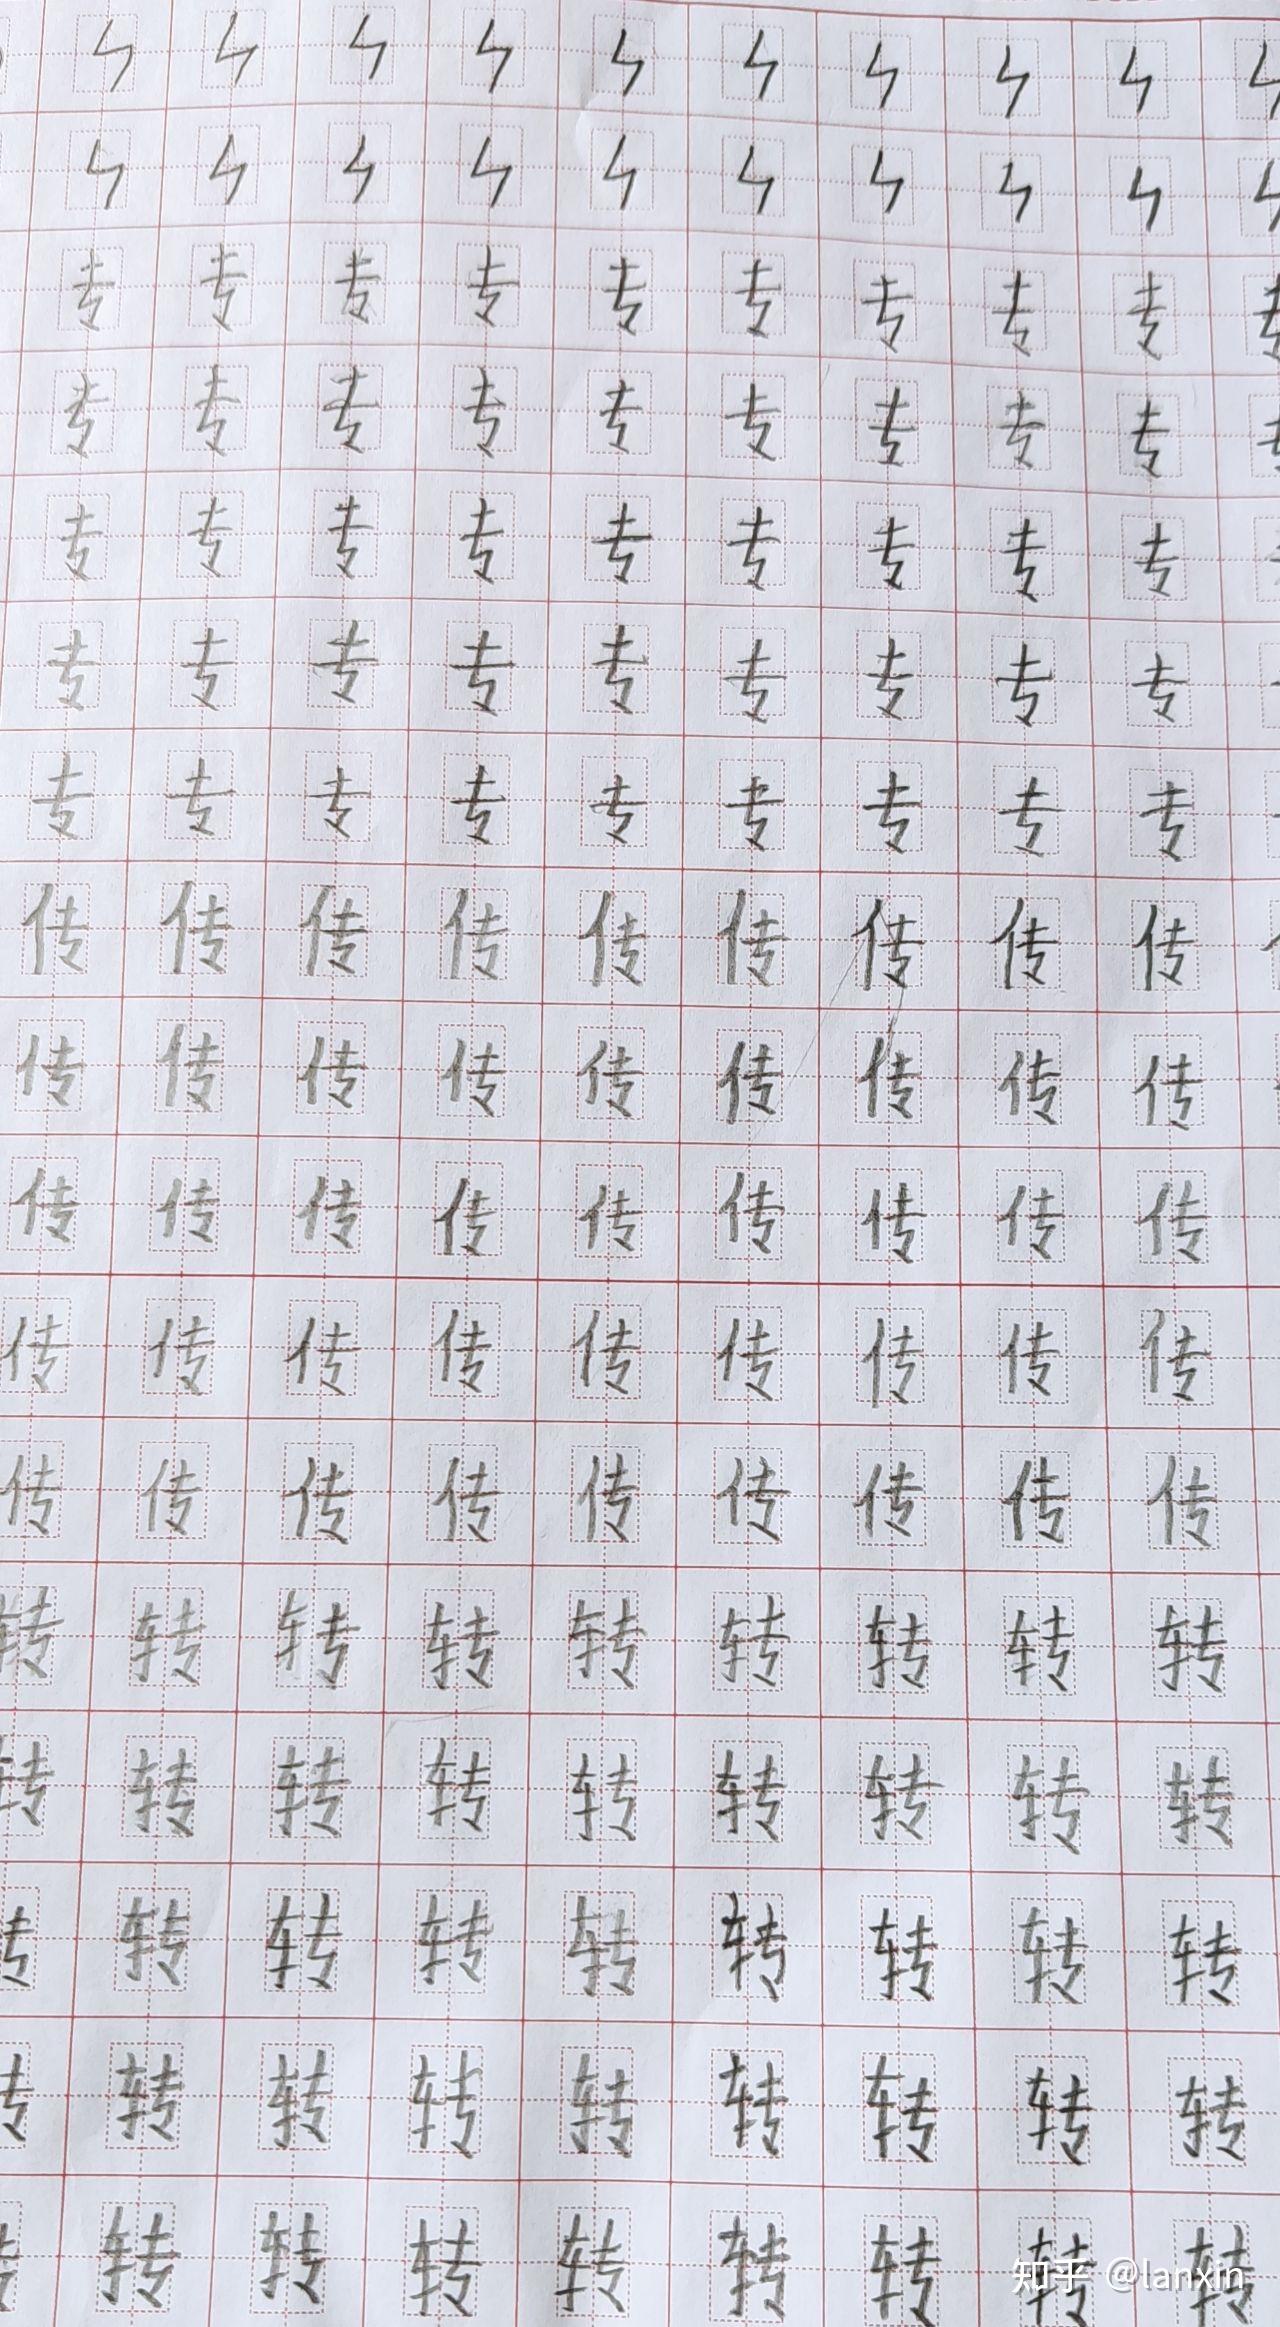 ㇞㇞㇞㇞㇞㇞㇞㇞㇞㇞
㇞㇞㇞㇞㇞㇞㇞㇞㇞㇞
专专专专专专专专专专
专专专专专专专专专
专专专专专专专专专
专专专专专专专专专
专专专专专专专专专
传传传传传传传传传
传传传传传传传传传
传传传传传传传传传
传传传传传传传传传
传传传传传传传传传
转转转转转转转转转
转转转转转转转转转
转转转转转转转转
转转转转转转转转
转转转转转转转转
知乎 @lanxin